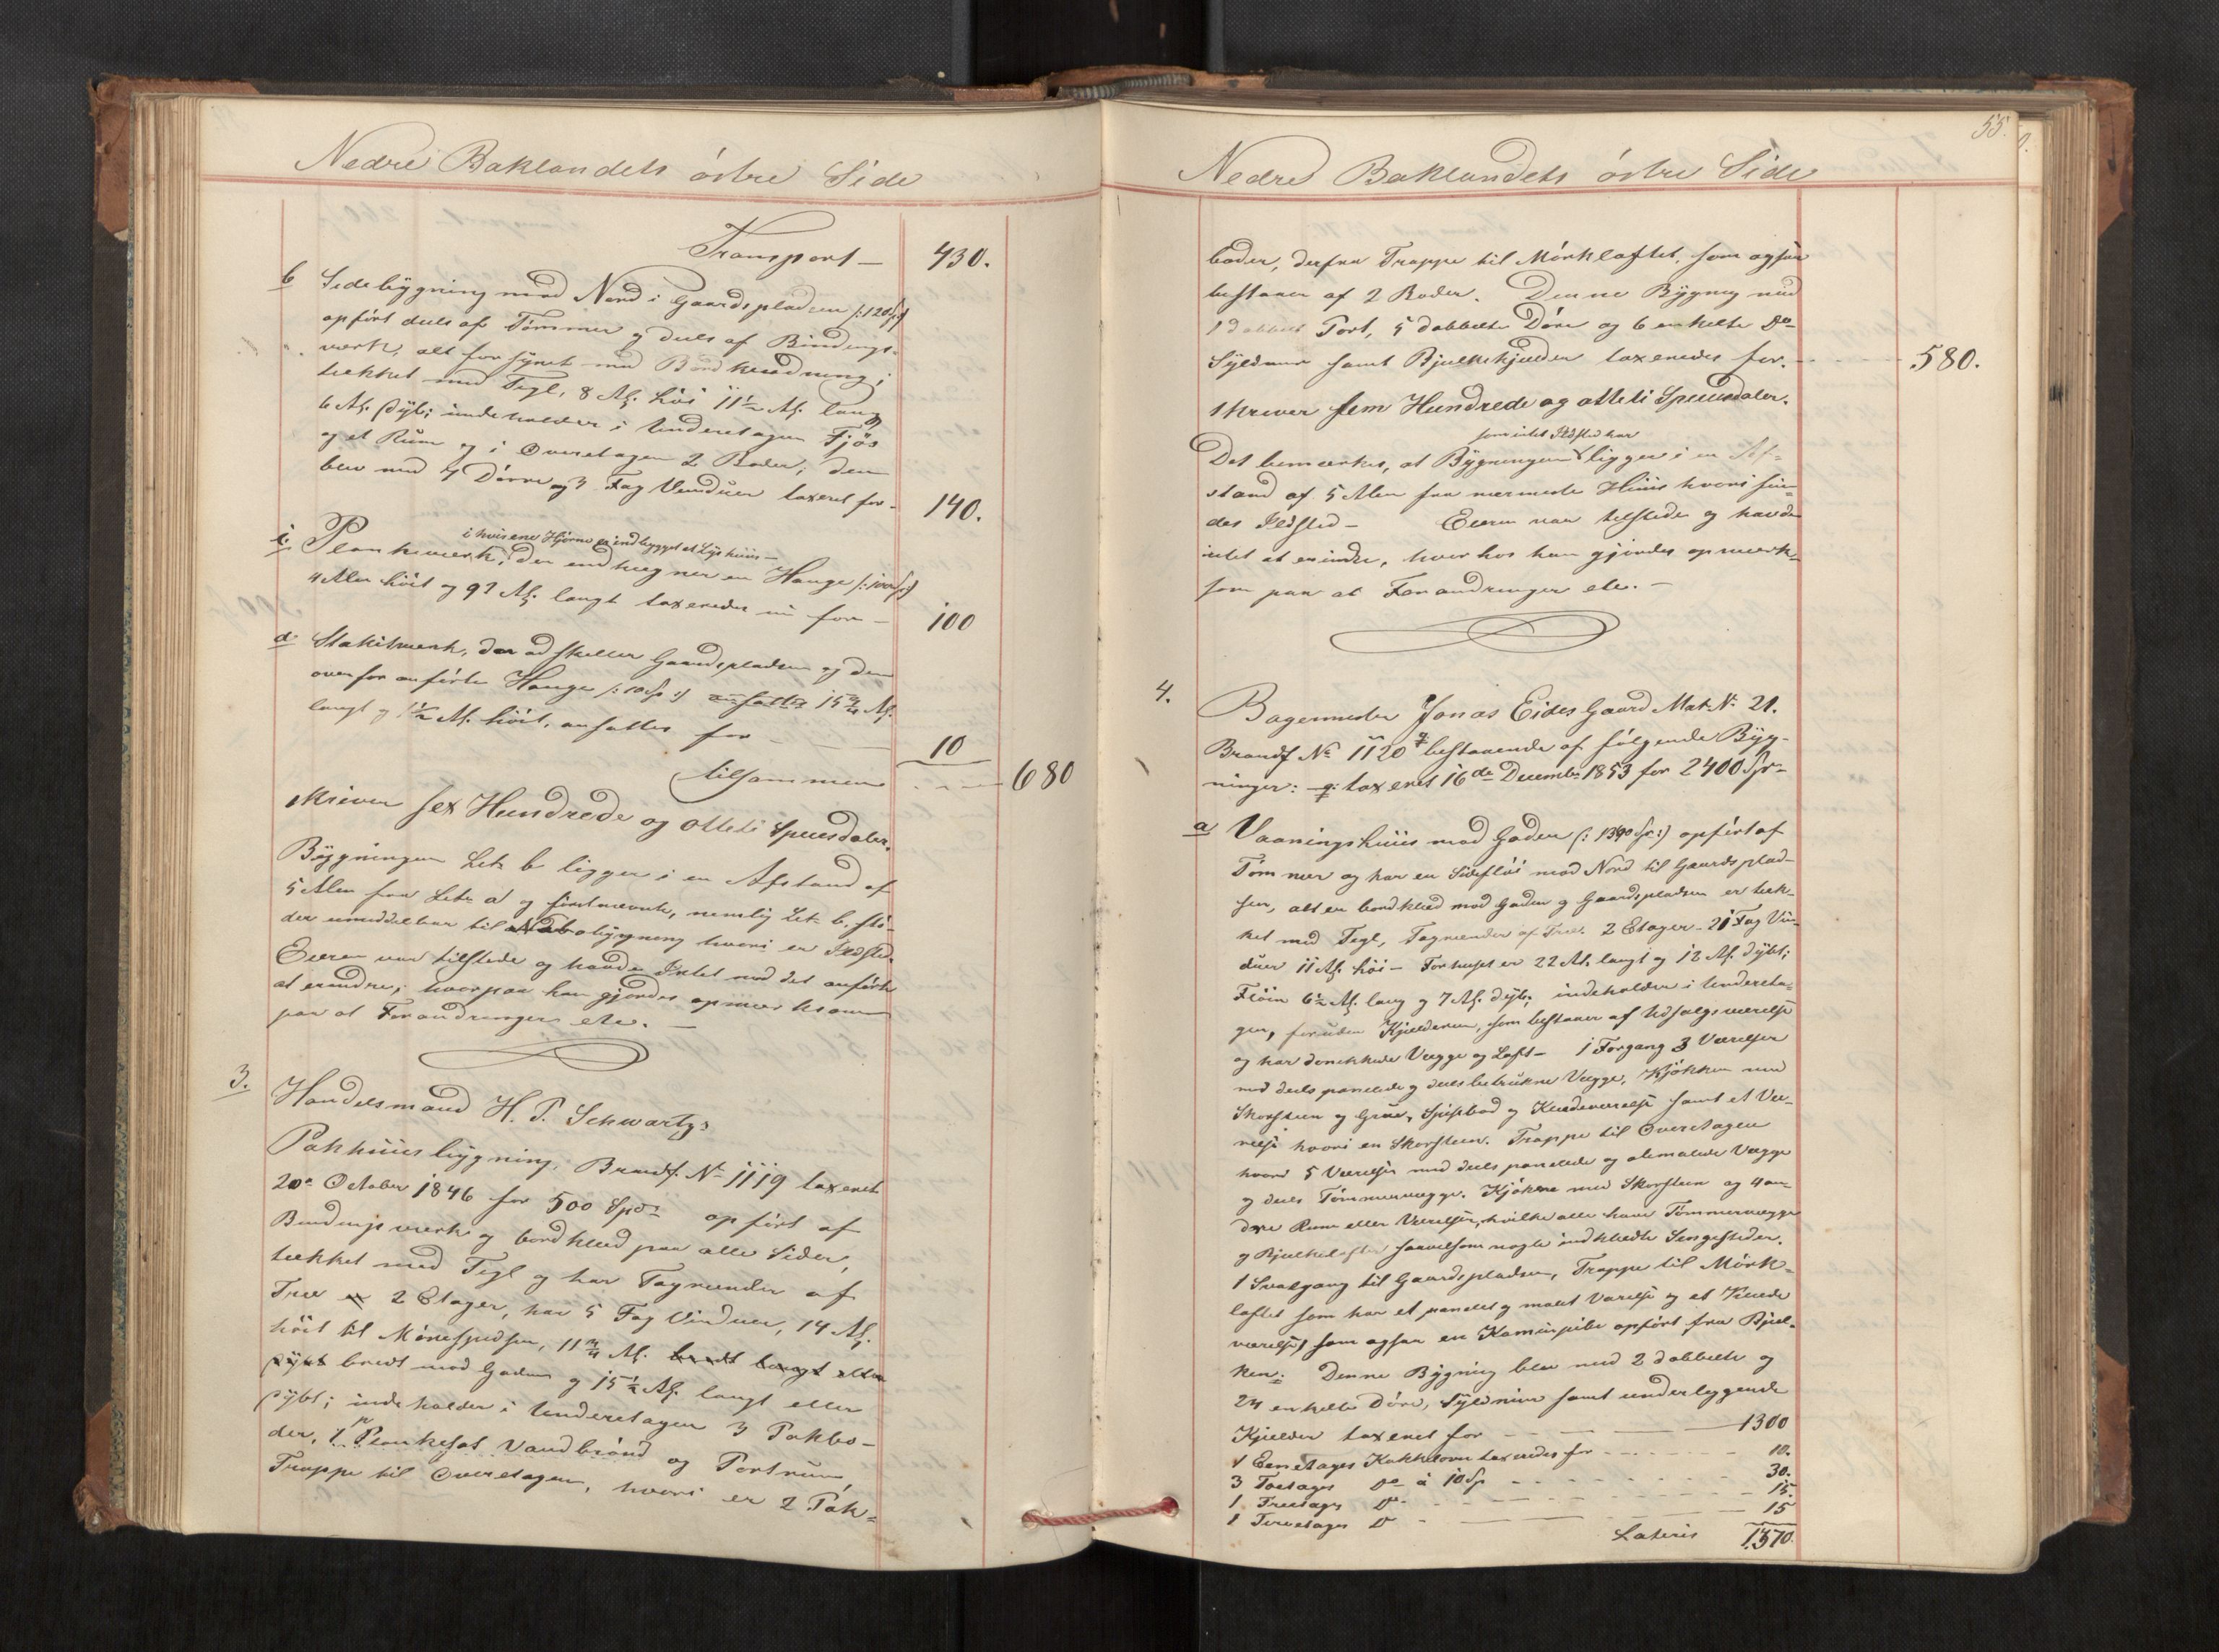 Nedre Baklandets østre Side
Transport – 430.
b Sidebygning mod Nord i Gaardspladsen /:120 Sp:/
opført deels af Tømmer og deels af Bindings-
værk, alt forsynet med Bordklædning;
tækket med Tegl, 8 Al. høi 11½ Al. lang
6 Al. dyb; indeholder i Underetagen Fjøs
og et Rum og i Overetagen 2 Boder, den
blev med 4 Dørre og 3 Fag Vinduer taxeret for – 140.
i hvis ene Hjørne er indbygget et Lysthuus –
c. Plankeværk, der indhegner en Hauge /:100 Sp:/
4 Alen høit og 92 Al. langt taxeredes nu for – 100
d Stakitværk, der adskiller Gaardspladsen og den
ovenfor anførte Hauge /:10 Sp:/ ansattes 15¾ Al.
langt og 1½ Al. høit, ansattes for – 10
tilsammen – 680
skriver sex Hundrede og otteti Speciesdaler.
Bygningen Litr b ligger i en Afstand af
5 Alen fra Litr a og førstnævnte, nemlig Litr b. stø-
der umiddelbar til Nabobygning hvori er Ildsted.
Eieren var tilstede og havde Intet mod det anførte
at erindre; hvorpaa han gjordes opmærksom
paa at Forandringer etc. –
3. Handelsmand H. P. Schwartz's
Pakhuusbygning, Brandf. No 1119 taxeret
20de October 1846 for 500 Spd opført af
Bindingsværk og bordklæd paa alle Sider,
tækket med Tegl og har Tagrender af
Træ 2 Etager, har 5 Fag Vinduer, 14 Al.
høit til Mønespidsen, 11¾ Al. bredt langt eller
dybt bredt mod Gaden og 15½ Al. langt eller
dybt; indeholder i Underetagen 3 Pakbo-
der, 1 Plankesat Vandbrønd og Portrum,
Trappe til Overetagen, hvori er 2 Pak-
55.
Nedre Baklandets østre Side
boder, derfra Trappe til Mørkloftet, som ogsaa
bestaaer af 2 Boder. Denne Bygning med
1 dobbelt Port, 5 dobbelte Døre og 6 enkelte Do
Syldmur samt Bjelkekjælder taxeredes for. – 580.
skriver fem Hundrede og otteti Speciesdaler.
som intet Ildsted har
Det bemærkes, at Bygningen ligger i en Af-
stand af 5 Alen fra nærmeste Huus hvori fin-
des Ildsted – Eieren var tilstede og havde
intet at erindre, hvorhos han gjordes opmærk-
som paa at Forandringer etc. –
4. Bagermester Jonas Eides Gaard Mat. No 21.
Brandf No 1120 bestaaende af følgende Byg-
ninger: taxeret 16de Decembr 1853 for 2400 Spd
a Vaaningshuus mod Gaden (: 1390 Sp:) opført af
Tømmer og har en Sidefløi mod Nord til Gaardsplad-
sen, alt er bordklæd mod Gaden og Gaardspladsen er tæk-
ket med Tegl, Tagrender af Træ. 2 Etager – 21 Fag Vin-
duer 11 Al. høi – Forhuset er 22 Al. langt og 12 Al. dybt;
Fløien 6½ Al. lang og 7 Al. dyb; indeholder i Undereta-
gen, foruden Kjælderen, som bestaaer af Udsalgsværelse
og har Vægge og Loft – 1 Forgang 3 Værelser
med deels panelede og deels betrukne Vægge, Kjøkken med
Skorsteen og Grue, Spisebod og Kladeværelse samt et Væ-
relse hvori en Skorsteen. Trappe til Overetagen
hvori 5 Værelser med deels panelede og olemalede Vægge
og deels Tømmervægge. Kjøkken med Skorsteen og 4 an-
dre Rum eller Værelser, hvilke alle have Tømmervægge
og Bjelkelofter saavelsom nogle indklædte Sengesteder.
1 Svalgang til Gaardspladsen, Trappe til Mørk-
loftet som har et panelet og malet Værelse og et Klæde
værelse, som ogsaa en Kaminpibe opført fra Bjel-
ken. Denne Bygning blev med 2 dobbelte og
24 enkelte Døre, Syldmur samt underliggende
Kjælder taxeret for – 1300
1 Eenetages Kakkelovn taxeredes for – 10.
3 Toetages Do à 10 Sp – 30.
1 Treetages Do – 15.
1 Fireetages Do – 15
Lateris 1370.